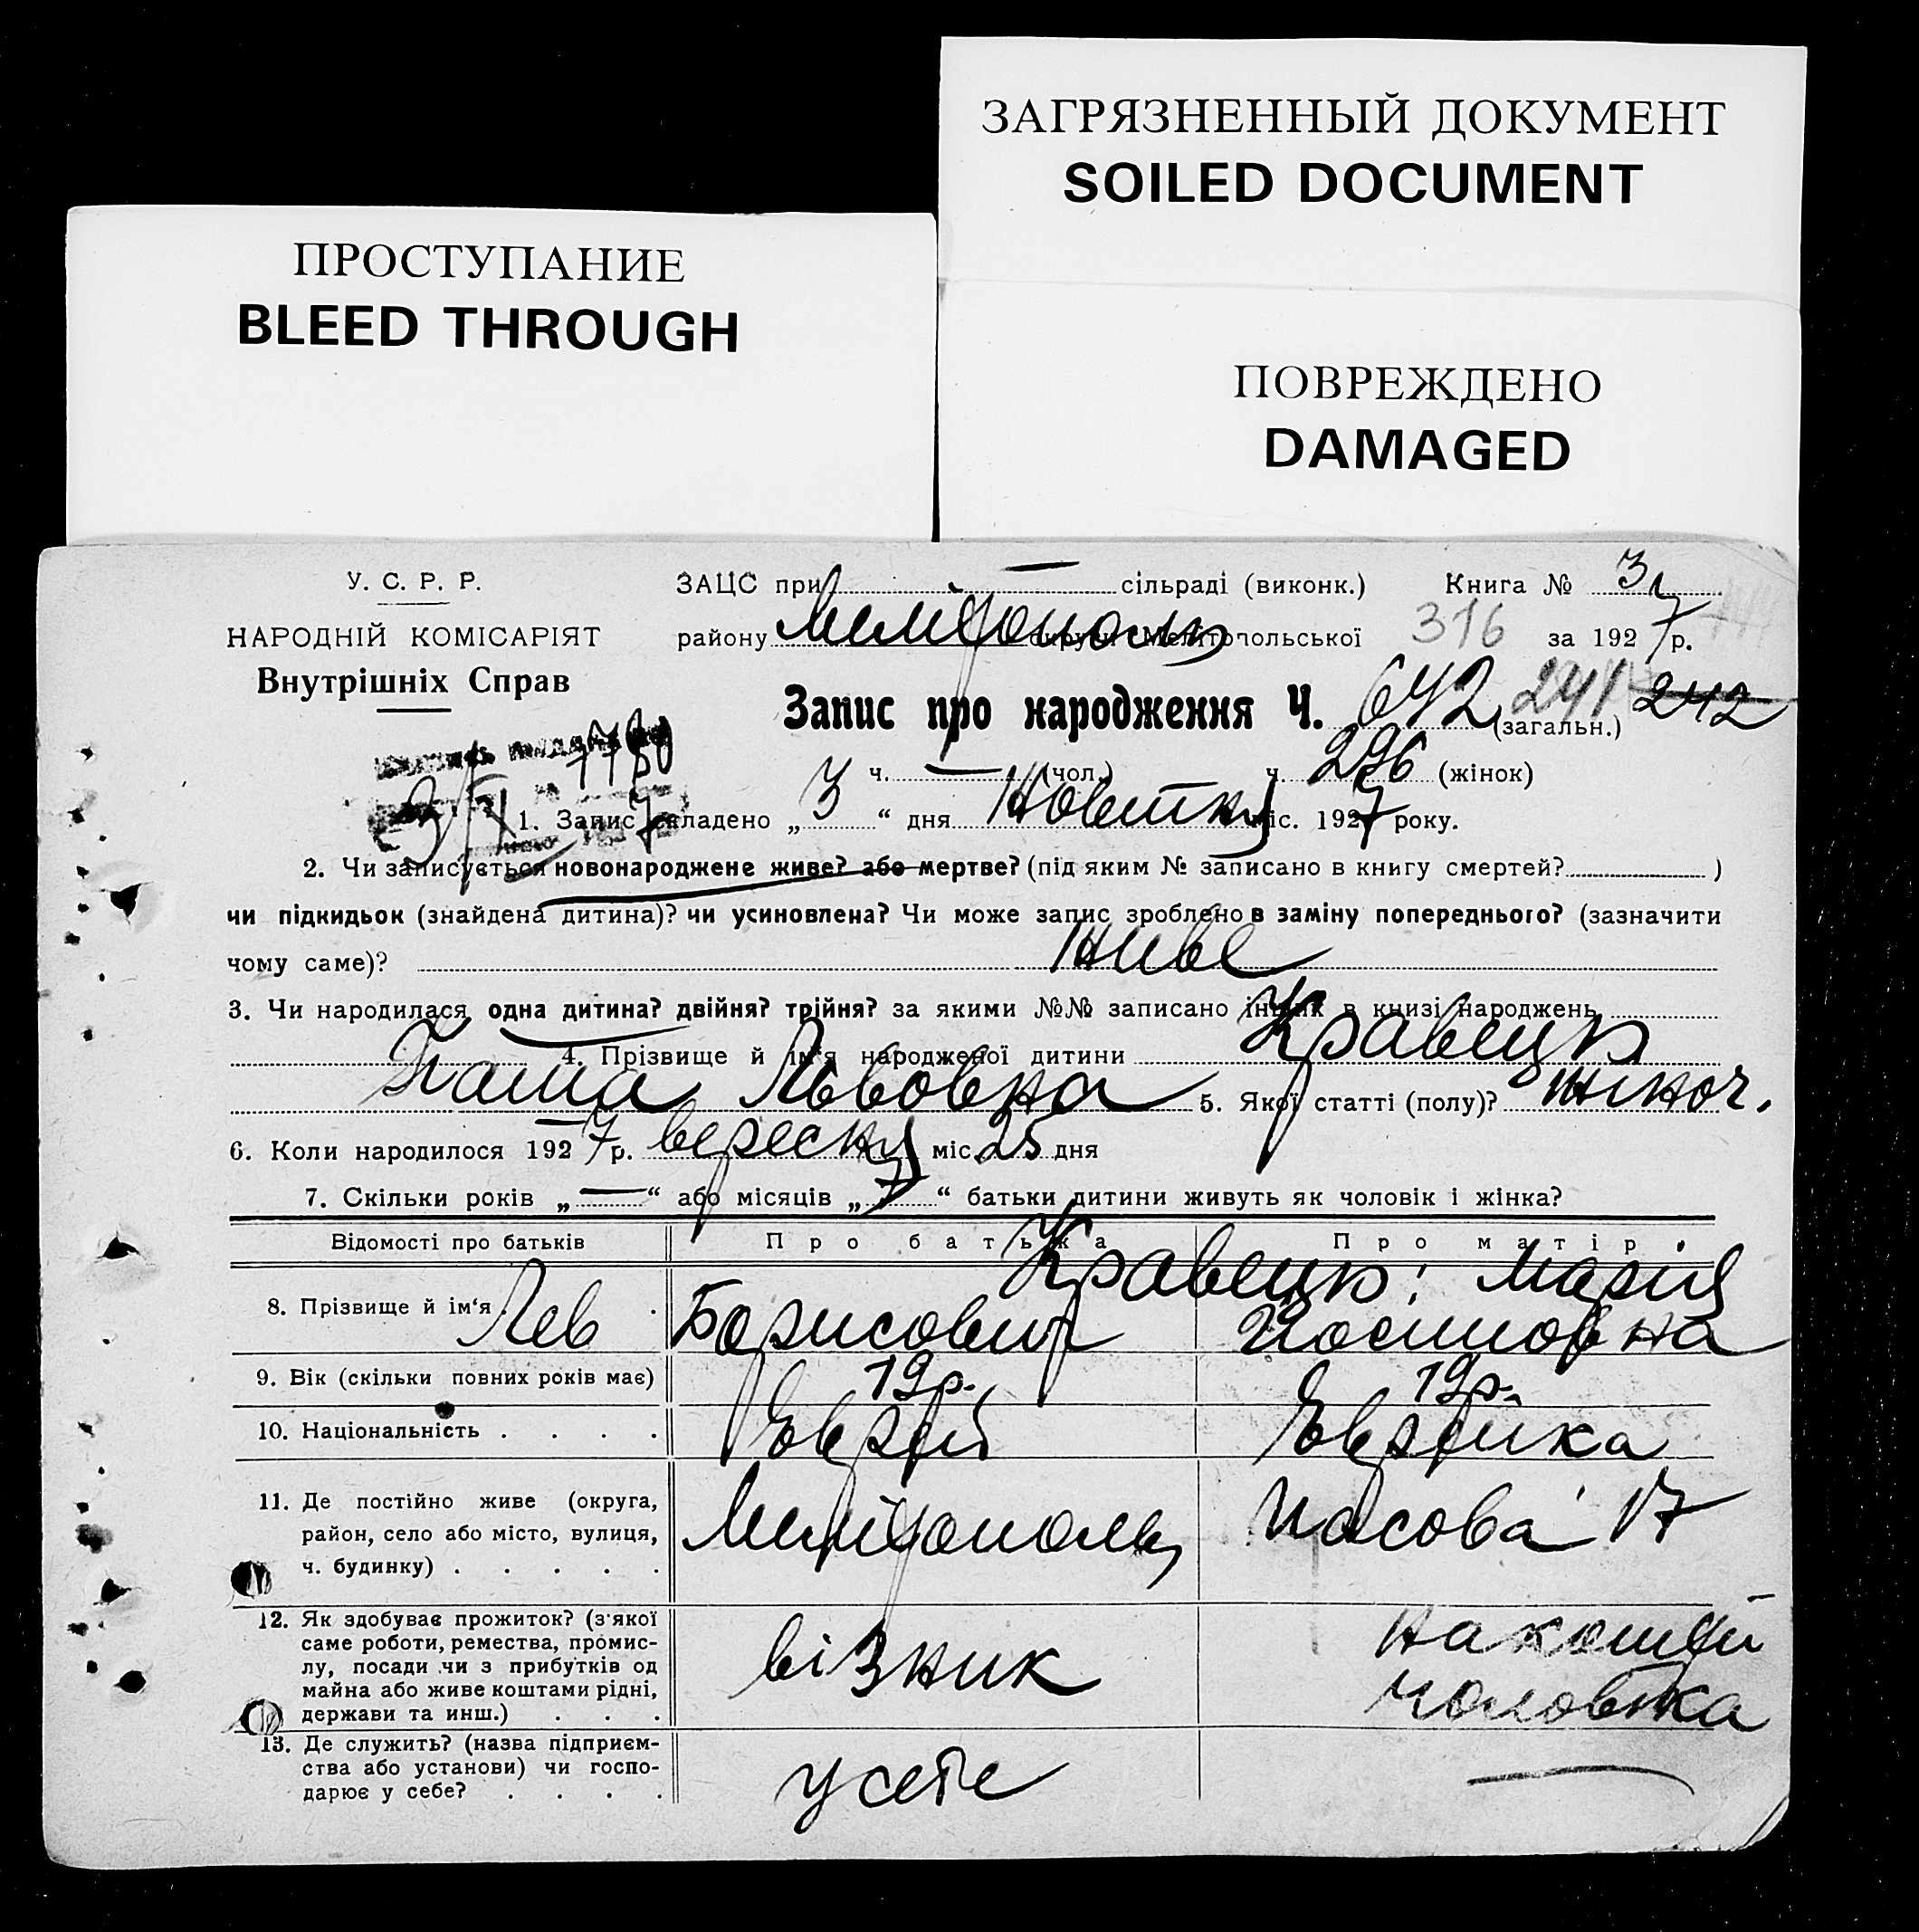 ЗАГРЯЗНЕННЫЙ ДОКУМЕНТ
SOILED DOCUMENT
ПРОСТУПАНИЕ
BLEED THROUGH
ПОВРЕЖДЕНО
DAMAGED
У. С. Р. Р.
НАРОДНІЙ КОМІСАРІЯТ
Внутрішніх Справ
ЗАЦС при — сільраді (виконк.) Книга № 3
району Мелітополь округи Мелітопольської 316 за 1927 р.
Запис про народження Ч. 642 (загальн.) 241 242
ч. — (чол.) ч. 296 (жінок)
1. Запис складено „3“ дня Жовтня міс. 1927 року.
2. Чи записується новонароджене живе? або мертве? (під яким № записано в книгу смертей? )
чи підкидьок (знайдена дитина)? чи усиновлена? Чи може запис зроблено в заміну попереднього? (зазначити
чому саме)? живе
3. Чи народилася одна дитина? двійня? трійня? за якими №№ записано інших в книзі народжень
4. Прізвище й ім'я народженої дитини Кравецъ
Львовна 5. Якої статті (полу)? жіноч.
6. Коли народилося 1927 р. вересня міс. 25 дня
7. Скільки років „—“ або місяців „7“ батьки дитини живуть як чоловік і жінка?
Відомості про батьків Про батька Про матір
8. Прізвище й ім'я Кравецъ: Марія
Лев Борисович Йосиповна
9. Вік (скільки повних років має) 19р. 19р.
10. Національність Еврей Еврейка
11. Де постійно живе (округа,
район, село або місто, вулиця,
ч. будинку)
Мелітополь 17
12. Як здобуває прожиток? (з'якої
саме роботи, ремества, промис-
лу, посади чи з прибутків од
майна або живе коштами рідні,
держави та инш.)
візник
на кошти
чоловіка
13. Де служить? (назва підприєм-
ства або установи) чи госпо-
дарює у себе?
у себе —